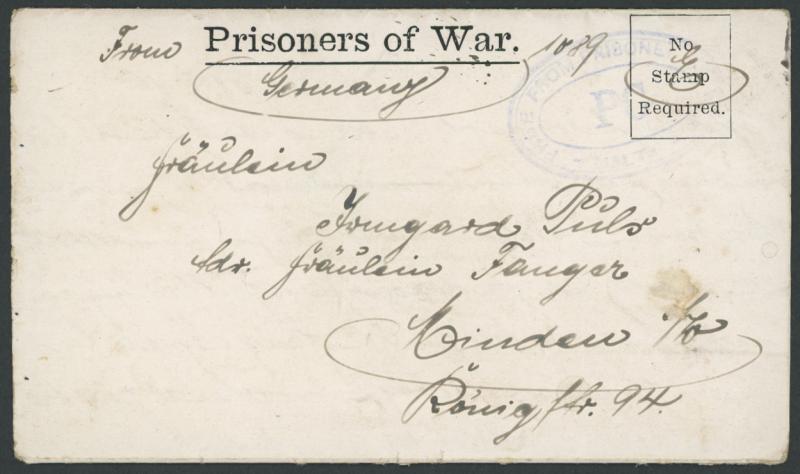 From Prisoners of War. 1089
Germany
No
Stamp
Required.
FREE FROM PRISONE
P
MALTA
Fräulein
Irmgard Puls
Adr. Fräulein Fanger
Minden i/W
Königstr. 94.